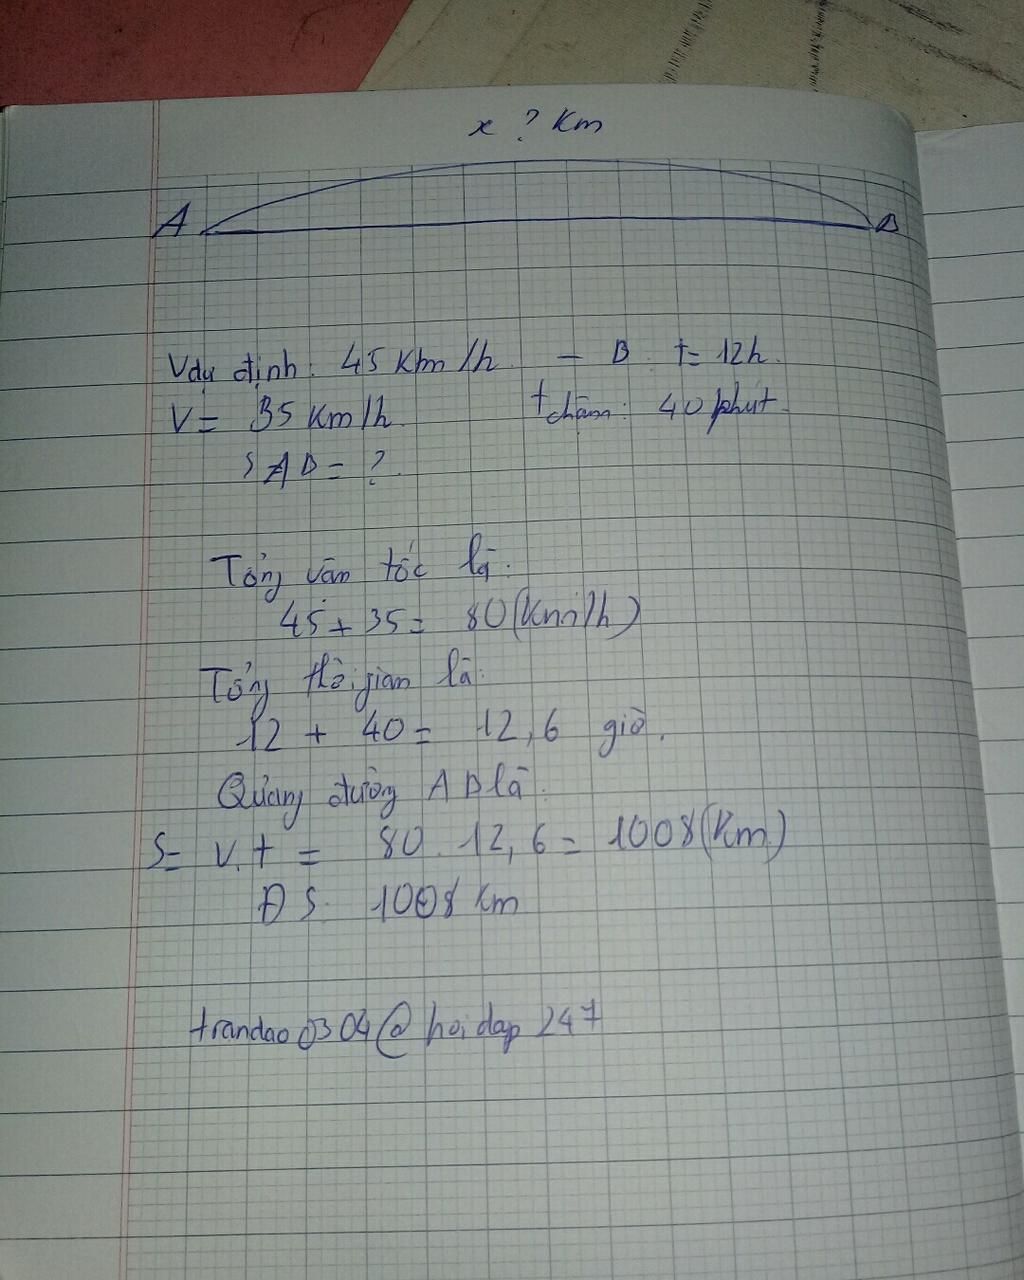 x ? Km
A B
Vdự định: 45 Km/h - B t= 12h.
V= 35 Km/h. t chậm: 40 phút.
SAB= ?.
Tổng vận tốc là:
45 + 35 = 80 (Km/h)
Tổng thời gian là:
12 + 40 = 12,6 giờ.
Quãng đường AB là:
S= v.t = 80. 12,6 = 1008 (Km)
ĐS: 1008 Km
trandao0304@hoidap247